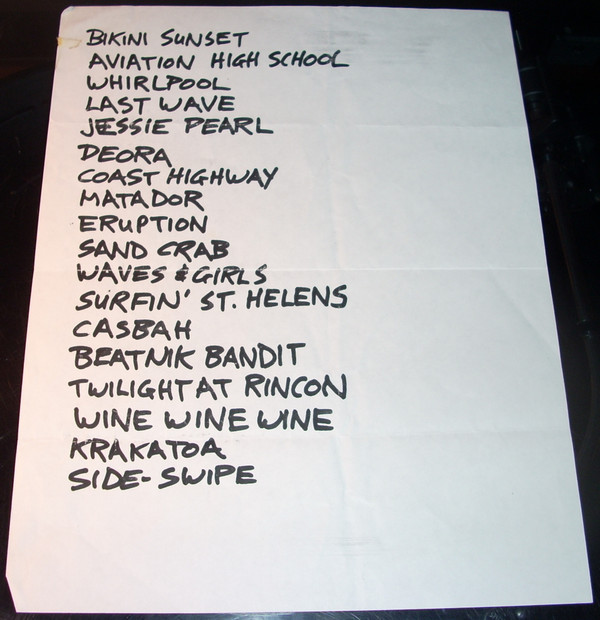 BIKINI SUNSET
AVIATION HIGH SCHOOL
WHIRLPOOL
LAST WAVE
JESSIE PEARL
DEORA
COAST HIGHWAY
MATADOR
ERUPTION
SAND CRAB
WAVES & GIRLS
SURFIN' ST. HELENS
CASBAH
BEATNIK BANDIT
TWILIGHT AT RINCON
WINE WINE WINE
KRAKATOA
SIDE-SWIPE